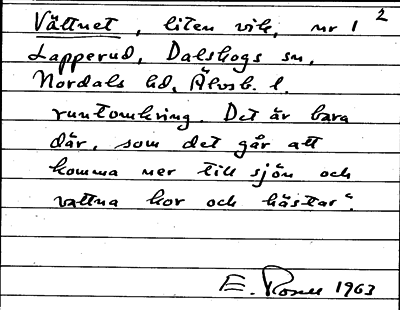 2
Vättnet, liten vik, nr 1
Lapperud, Dalskogs sn,
Nordals hd, Älvsb. l.
runtomkring. Det är bara
där, som det går att
komma ner till sjön och
vattna kor och hästar".
E. Rosell 1963